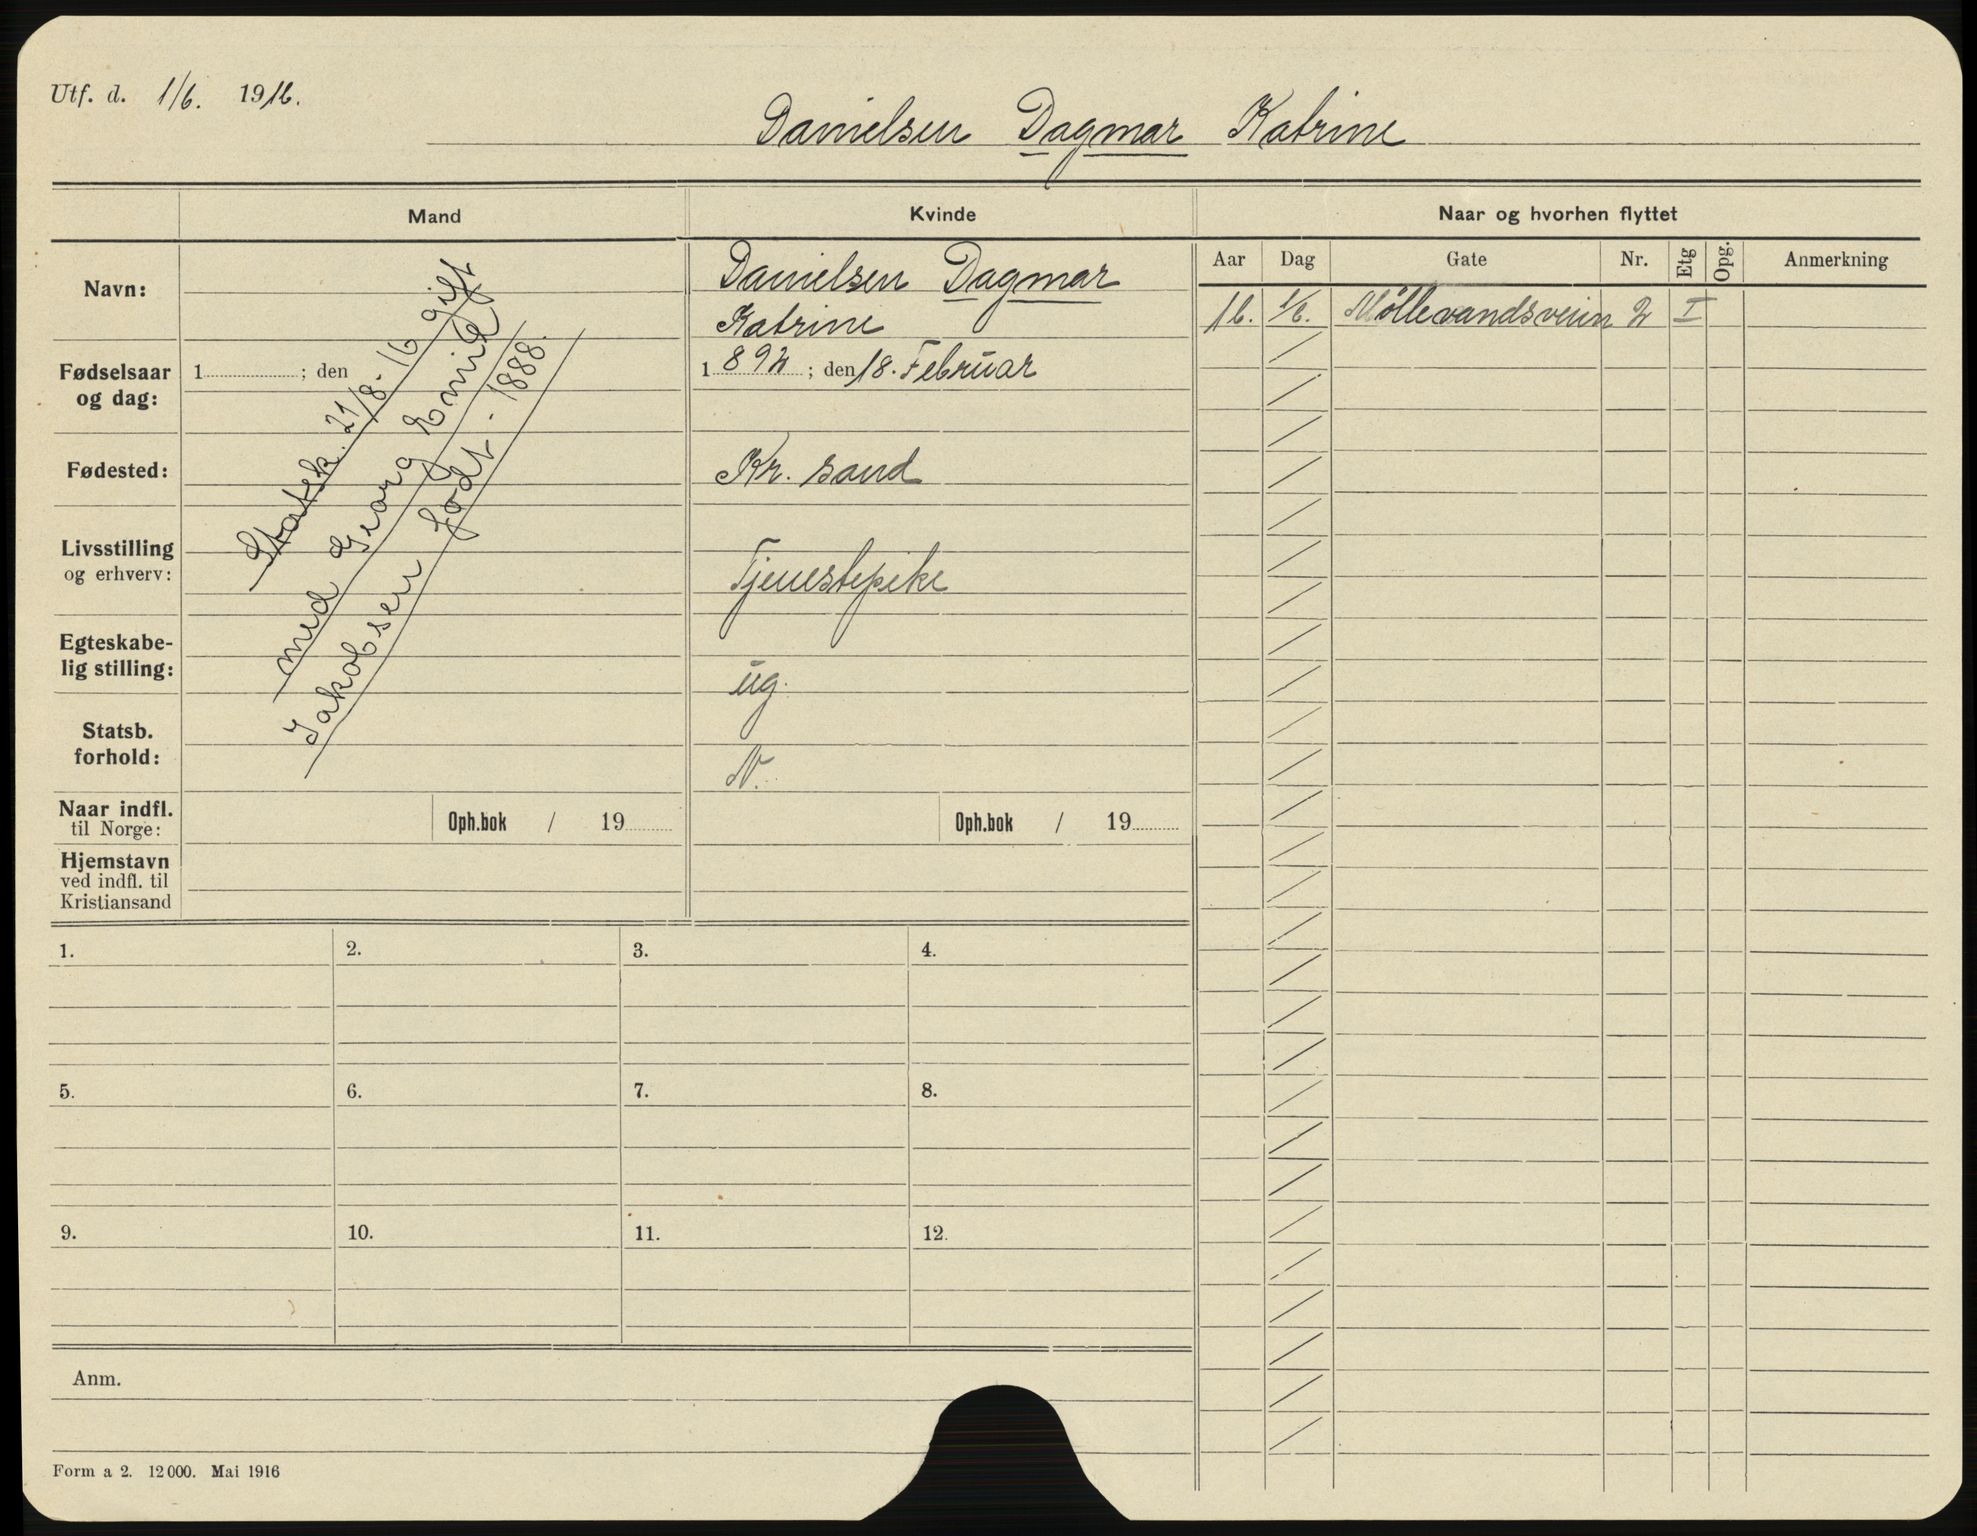 Utf. d. 1/6. 1916.
Danielsen Dagmar Katrine
Mand
Kvinde
Naar og hvorhen flyttet
Aar Dag Gate Nr. Etg Opg. Anmerkning
16. 1/6. Møllevandsveien 2 I
Navn:
Danielsen Dagmar
Katrine
Fødselsaar
og dag:
1 ; den
1892 ; den 18. Februar
Fødested:
Kr. sand
Livsstilling
og erhverv:
Tjenestepike
Egteskabe-
lig stilling:
ug.
Statsb.
forhold:
N.
Statsk. 21/8-16 gift
med Georg Emil
Jakobsen født - 1888.
Naar indfl.
til Norge:
Oph.bok / 19
Oph.bok / 19
Hjemstavn
ved indfl. til
Kristiansand
1. 2. 3. 4.
5. 6. 7. 8.
9. 10. 11. 12.
Anm.
Form a 2. 12000. Mai 1916